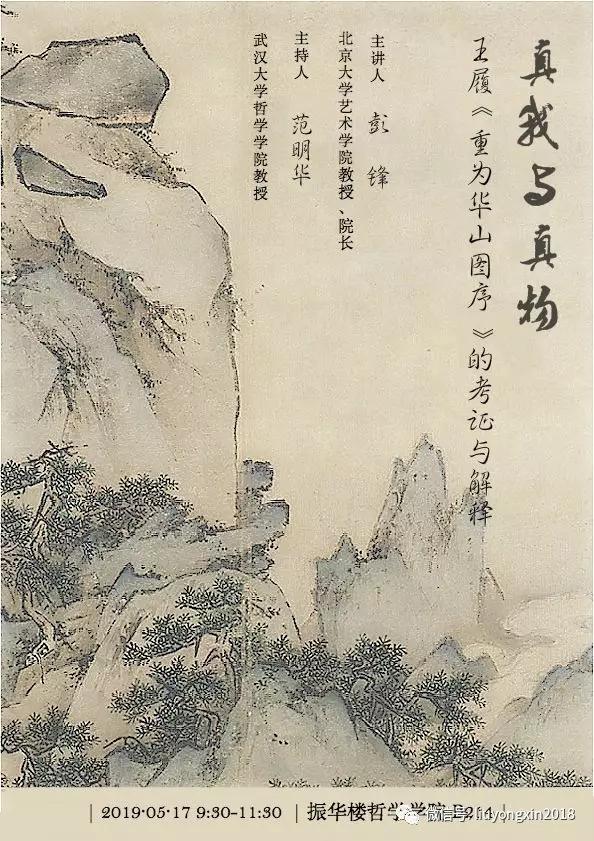 真我与真物
王履《重为华山图序》的考证与解释
主讲人 彭锋
北京大学艺术学院教授、院长
主持人 范明华
武汉大学哲学学院教授
| 2019·05·17 9:30-11:30 | 振华楼哲学学院 B214 |
微信号: liuyongxin2018